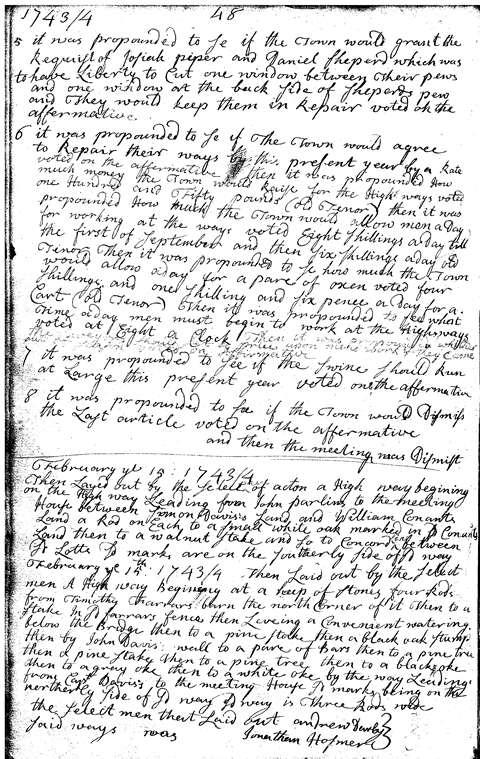 1743/4 48
5 it was propounded to se if the Town would grant the
Requist of Josiah piper and Daniel sheperd which was
to have Liberty to Cut one window between Their pews
and one window at the back side of sheperds pew
and They would keep them in Repair voted on the
affermative.
6 it was propounded to se if The Town would agree
to Repair their ways by this present year by a Rate
voted on the affermative then it was propounded How
much money the Town would Raise for the High ways voted
one Hundred and Fifty pounds (old Tenor) then it was
propounded How much the Town would allow men a day
for working at the ways voted Eight shillings a day till
the first of September and then six shillings a day old
Tenor Then it was propounded to se how much the Town
would allow a day for a pare of oxen voted four
shillings and one shilling and six pence a day for a
Cart (old Tenor) Then it was propounded to see what
Time a day men must begin to work at the Highways
voted at Eight a Clock Then it was propounded
affermative
7 it was propounded to see if the swine should Run
at Large this present year voted on the affermative
8 it was propounded to see if the Town would Dismiss
the Last article voted on the affermative
and then the meeting was Dismist
February ye 15: 1743/4
Then Layed out by the select of acton a High way begining
on the High way Leading from John Parlins to the meeting
House between Simon Davis's Land and William Conants
Land a Rod on Each to a small while oak marked in sd Conants
Land then to a walnut stake and so to Concord between
sd Lotts sd marks are on the southerly side of sd way
February ye 15th: 1743/4 Then Laid out by the select
men A High way Begining at a heep of stones four Rods
from Timothy Farrars barn the north Corner of it Then to a
stake In sd Farrars fence then Leveing a Convenient watering
below the Bridge then to a pine stake then a black oak stump
then by John Davis: wall to a pare of Bars then to a pine tree
then a pine stake then to a pine tree then to a black oke
then to a gray oke then to a white oke by the way Leading
from Capt Davis's to the meeting House sd marks being on the
northerly side of sd way sd way is Three Rods wide
the select men that Laid out andrew Darby
said ways was Jonathan Hosmer